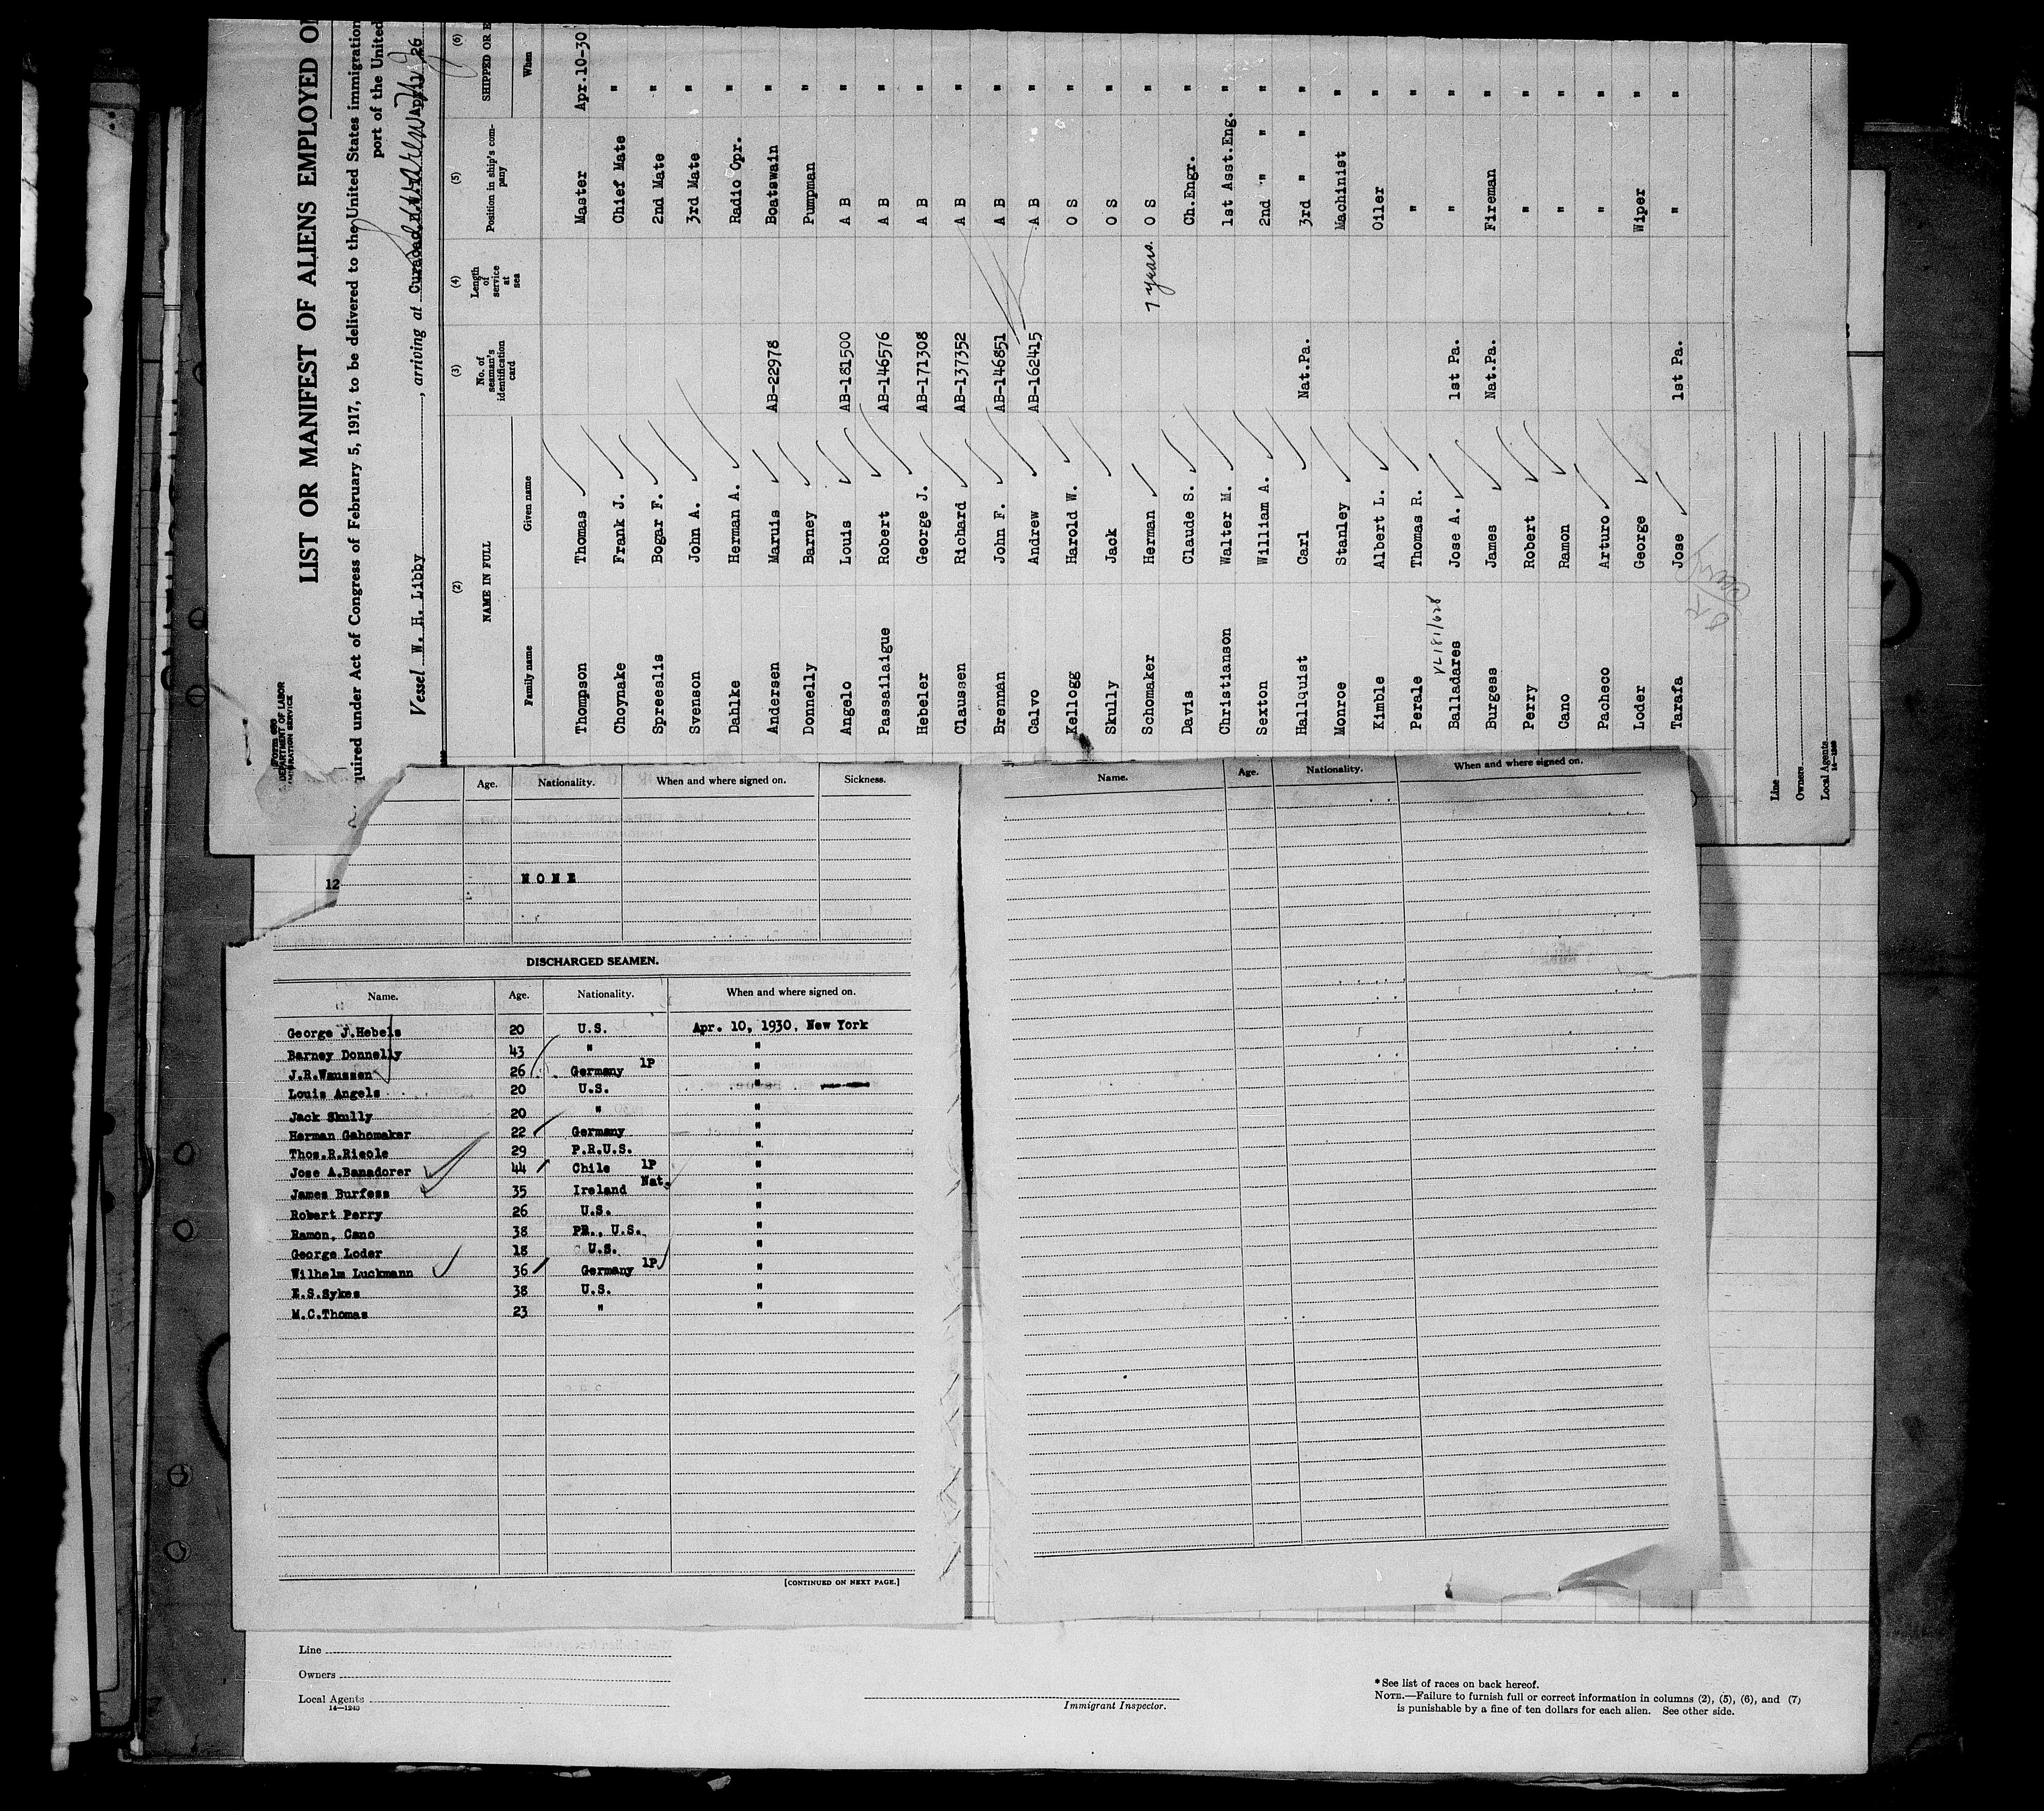 Form 680
DEPARTMENT OF LABOR
IMMIGRATION SERVICE
LIST OR MANIFEST OF ALIENS EMPLOYED O
quired under Act of Congress of February 5, 1917, to be delivered to the United States immigration
port of the United
Vessel W. H. Libby, arriving at Curacao
(2) (3) (4) (5) (6)
NAME IN FULL No. of seaman's identification card Length of service at sea Position in ship's company SHIPPED OR E
Family name Given name When
Thompson Thomas Master Apr.10-30
Choynake Frank J. Chief Mate "
Spreeslis Bogar F. 2nd Mate "
Svenson John A. 3rd Mate "
Dahlke Herman A. Radio Opr. "
Andersen Maruis AB-22978 Boatswain "
Donnelly Barney Pumpman "
Angelo Louis AB-181500 A B "
Passailaigue Robert AB-146576 A B "
Hebeler George J. AB-171308 A B "
Claussen Richard AB-137352 A B "
Brennan John F. AB-146851 A B "
Calvo Andrew AB-162415 A B "
Kellogg Harold W. O S "
Skully Jack O S "
Schomaker Herman 7 years. O S "
Davis Claude S. Ch.Engr. "
Christianson Walter M. 1st Asst.Eng. "
Sexton William A. 2nd " " "
Hallquist Carl Nat.Pa. 3rd " " "
Monroe Stanley Machinist "
Kimble Albert L. Oiler "
Perale Thomas R. " "
Balladares Jose A. 1st Pa. " "
Burgess James Nat.Pa. Fireman "
Perry Robert " "
Cano Ramon " "
Pacheco Arturo " "
Loder George Wiper "
Tarafa Jose 1st Pa. " "
Line
Owners
Local Agents
14—1240
Age. Nationality. When and where signed on. Sickness.
12
N O N E
DISCHARGED SEAMEN.
Name. Age. Nationality. When and where signed on.
George J.Hebels 20 U.S. Apr. 10, 1930, New York
Barney Donnelly 43 " "
J.R.Waussen 26 Germany 1P "
Louis Angels 20 U.S. "
Jack Skully 20 " "
Herman Gahomaker 22 Germany "
Thos.R.Rieole 29 P.R.U.S. "
Jose A.Banadorer 44 Chile 1P "
James Burfess 35 Ireland Nat. "
Robert Perry 26 U.S. "
Ramon, Cano 38 PR., U.S. "
George Loder 18 U.S. "
Wilhelm Luckmann 36 Germany 1P "
E.S.Sykes 38 U.S. "
M.C.Thomas 23 " "
[CONTINUED ON NEXT PAGE.]
Name. Age. Nationality. When and where signed on.
Line
Owners
Local Agents
14—1240
Immigrant Inspector.
*See list of races on back hereof.
NOTE.—Failure to furnish full or correct information in columns (2), (5), (6), and (7)
is punishable by a fine of ten dollars for each alien. See other side.